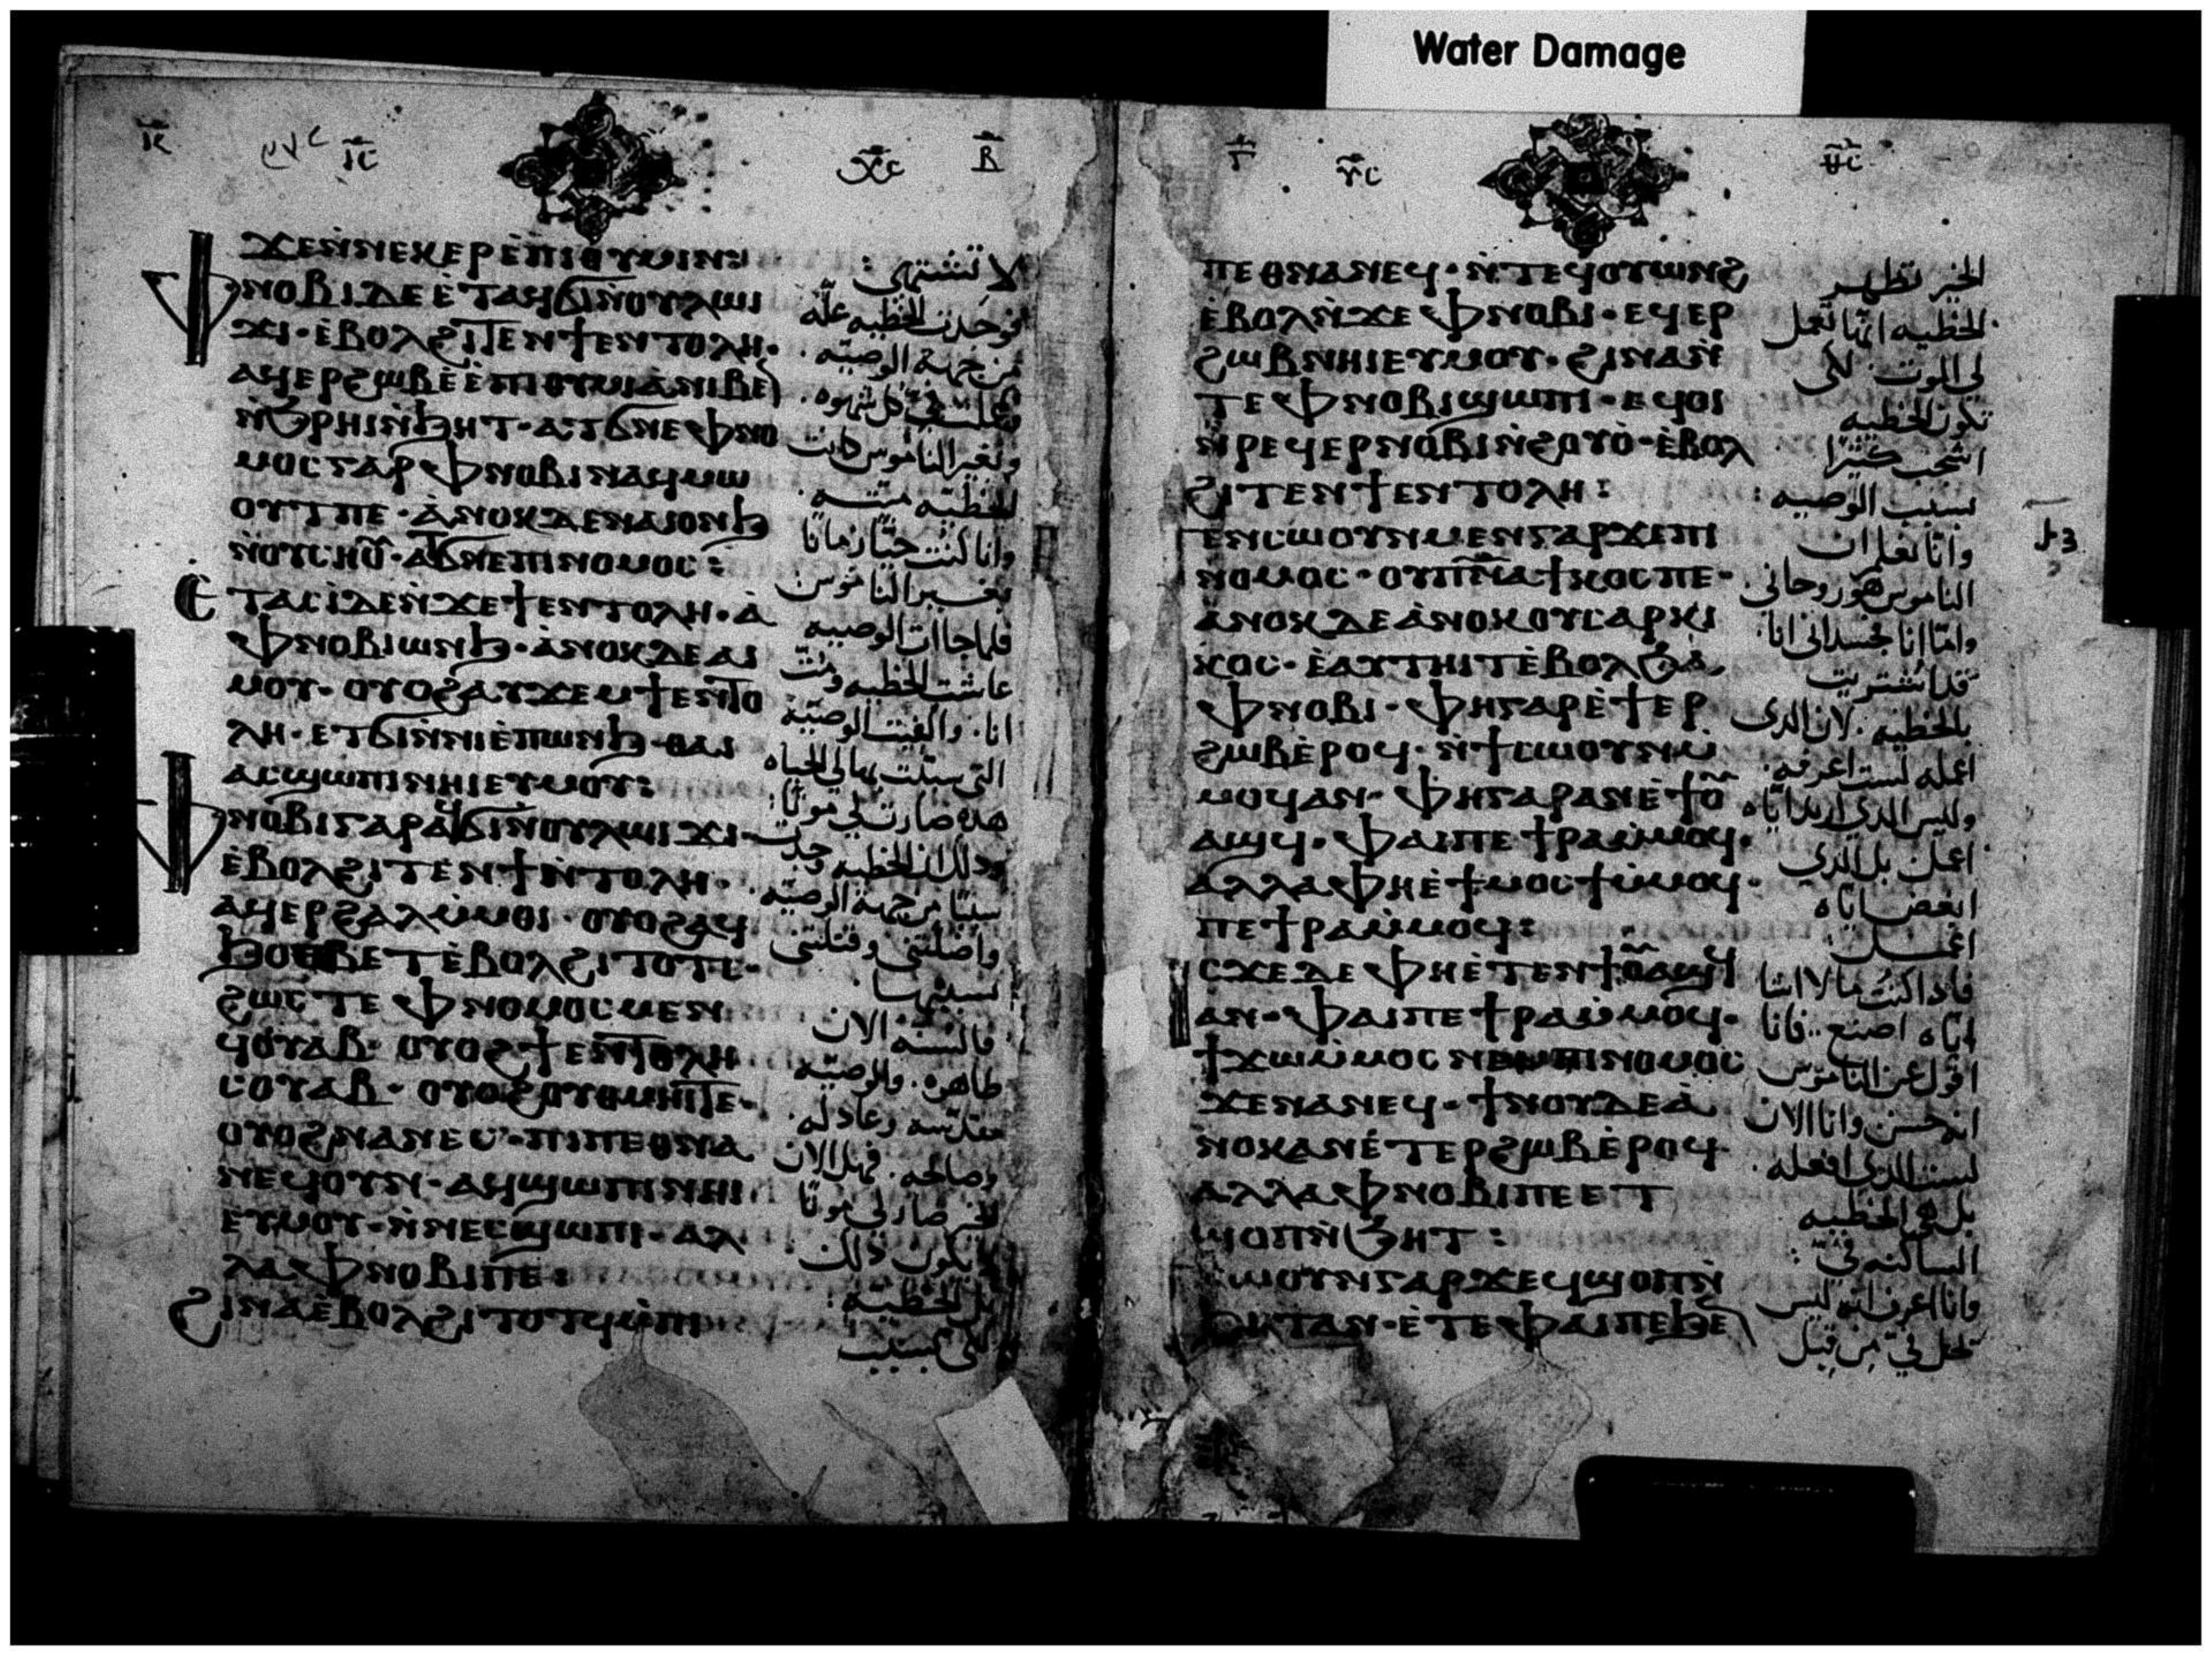 Water Damage
ⲓ̅ⲥ̅
ⲭ̅ⲥ̅
ⲃ̅
ϫⲉⲛ̀ⲛⲉⲕⲉⲣⲉ̀ⲡⲓⲑⲩⲙⲓⲛ:
ⲫⲛⲟⲃⲓⲇⲉⲉ̀ⲧⲁϥϭⲓⲛ̀ⲟⲩⲗⲱⲓ
ϫⲓ· ⲉ̀ⲃⲟⲗϩⲓⲧⲉⲛϯⲉⲛⲧⲟⲗⲏ·
ⲁϥⲉⲣϩⲱⲃ
ⲛ̀ϧⲣⲏⲓⲛ̀ϧⲏⲧ· ⲁⲧϭⲛⲉⲫⲛⲟ
ⲙⲟⲥⲅⲁⲣⲫⲛⲟⲃⲓⲛⲁϥⲙⲱ
ⲟⲩⲧⲡⲉ· ⲁ̀ⲛⲟⲕⲇⲉⲛⲁⲓⲟⲛϧ
ⲛ̀ⲟⲩⲥⲏⲟⲩ· ⲁⲧϭⲛⲉⲡⲓⲛⲟⲙⲟⲥ:
ⲉ̀ⲧⲁⲥⲓ̀ⲇⲉⲛ̀ϫⲉϯⲉⲛⲧⲟⲗⲏ· ⲁ̀
ⲫⲛⲟⲃⲓⲱⲛϧ· ⲁ̀ⲛⲟⲕⲇⲉⲁⲓ
ⲙⲟⲩ· ⲟⲩⲟϩⲁⲩϫⲉⲙϯⲉⲛⲧⲟ
ⲗⲏ· ⲉⲧϭⲓⲛ̀ⲛⲏⲓⲉ̀ⲡⲱⲛϧ· ⲑⲁⲓ
ⲁⲥϣⲱⲡⲓⲛⲏⲓⲉⲩⲙⲟⲩ:
ⲫⲛⲟⲃⲓⲅⲁⲣⲁϥϭⲓⲛ̀ⲟⲩⲗⲱⲓϫⲓ·
ⲉ̀ⲃⲟⲗϩⲓⲧⲉⲛϯⲛ̀ⲧⲟⲗⲏ·
ⲁϥⲉⲣϩⲁⲗⲙ̀ⲙⲟⲓ· ⲟⲩⲟϩⲁϥ
ⲉ̀ⲃⲟⲗϩⲓⲧⲟⲧⲥ·
ϩⲱⲥⲧⲉ ⲫⲛⲟⲙⲟⲥⲙⲉⲛ
ϥⲟⲩⲁⲃ· ⲟⲩⲟϩϯⲉⲛⲧⲟⲗⲏ
ⲥⲟⲩⲁⲃ· ⲟⲩⲟϩⲟⲩⲑⲙⲏⲓⲧⲉ·
ⲟⲩⲟϩⲛⲁⲛⲉⲥ· ⲡⲓⲡⲉⲑⲛⲁ
ⲛⲉϥⲟⲩⲛ· ⲁϥϣⲱⲡⲓⲛⲏⲓ
ⲉⲩⲙⲟⲩ· ⲛ̀ⲛⲉⲥϣⲱⲡⲓ· ⲁⲗ
ⲗⲁⲫⲛⲟⲃⲓⲡⲉ:
ϩⲓⲛⲁⲉ̀ⲃⲟⲗϩⲓⲧⲟⲧϥⲙ̀ⲡⲓ
لا تشتهى:
فوجدت الخطيه علّه
من جهة الوصيّه
وبغير الناموس كانت
الخطيّه ميته
وانا كنت حيًّا زمانًا
بغير الناموس
فلما جاات الوصيه
عاشت الخطيه ومت
انا· والفيت الوصيّه
هذه صارت لي موتًا:
واضلّتنى وقتلتنى
بسببها
فالسنّه الان
طاهره· والوصيّه
مقدّسه وعادله·
وصالحه· فهل الان
الخير صار لى موتًا
لا يكون ذلك
بل الخطيّه:
لكى بسبب
ⲅ̅
ⲩ̅ⲥ̅
ⲑ̅ⲥ̅
ⲡⲉⲑⲛⲁⲛⲉϥ· ⲛ̀ⲧⲉϥⲟⲩⲱⲛϩ
ⲉ̀ⲃⲟⲗⲛ̀ϫⲉ ⲫⲛⲟⲃⲓ· ⲉϥⲉⲣ
ϩⲱⲃⲛⲏⲓⲉⲩⲙⲟⲩ· ϩⲓⲛⲁⲛ̀
ⲧⲉⲫⲛⲟⲃⲓϣⲱⲡⲓ· ⲉϥⲟⲓ
ⲛ̀ⲣⲉϥⲉⲣⲛⲟⲃⲓⲛ̀ϩⲟⲩⲟ̀· ⲉ̀ⲃⲟⲗ
ϩⲓⲧⲉⲛϯⲉⲛⲧⲟⲗⲏ:
ⲧⲉⲛⲥⲱⲟⲩⲛⲙⲉⲛⲅⲁⲣϫⲉⲡⲓ
ⲛⲟⲙⲟⲥ· ⲟⲩⲡ̅ⲛ̅ⲁ̅ϯⲕⲟⲥⲡⲉ·
ⲁ̀ⲛⲟⲕⲇⲉⲁ̀ⲛⲟⲕⲟⲩⲥⲁⲣⲕⲓ
ⲕⲟⲥ· ⲉ̀ⲁⲩⲧⲏⲓⲧⲉ̀ⲃⲟⲗϧⲁ
ⲫⲛⲟⲃⲓ· ⲫⲏⲅⲁⲣⲉ̀ϯⲉⲣ
ϩⲱⲃⲉ̀ⲣⲟϥ· ⲛ̀ϯⲥⲱⲟⲩⲛⲙ̀
ⲙⲟϥⲁⲛ· ⲫⲏⲅⲁⲣⲁⲛⲉ̀ϯⲟⲩ
ⲁϣϥ· ⲫⲁⲓⲡⲉ ϯⲣⲁⲙ̀ⲙⲟϥ·
ⲁⲗⲗⲁⲫⲏⲉ̀ϯⲙⲟⲥϯⲙ̀ⲙⲟϥ·
ⲡⲉϯⲣⲁⲙ̀ⲙⲟϥ:
ⲓⲥϫⲉⲇⲉ ⲫⲏⲉ̀ⲧⲉⲛϯⲟⲩⲁϣϥ
ⲁⲛ· ⲫⲁⲓⲡⲉ ϯⲣⲁⲙ̀ⲙⲟϥ·
ϯϫⲱⲙ̀ⲙⲟⲥ ⲡⲓⲛⲟⲙⲟⲥ
ϫⲉⲛⲁⲛⲉϥ· ϯⲛⲟⲩⲇⲉⲁ̀
ⲛⲟⲕⲁⲛⲉ̀ⲧⲉⲣϩⲱⲃⲉ̀ⲣⲟϥ
ⲁⲗⲗⲁⲫⲛⲟⲃⲓⲡⲉⲉⲧ
ϣⲟⲡⲛ̀ϧⲏⲧ:
ⲥⲱⲟⲩⲛⲅⲁⲣϫⲉϥϣⲟⲡⲛ̀
ϧⲏⲧⲁⲛ· ⲉ̀ⲧⲉⲫⲁⲓⲡⲉϧⲉⲛ
الخير تظهر
الخطيه انها تعمل
لي الموت· لكى
تكون الخطيه
بسبب الوصيه:
وانا نعلم ان
الناموس هو روحانى·
وامّا انا جسدانى انا·
بالخطيه· لان الذى
اعمله لست اعرفه·
اعمل بل الذى
ابغض ايّاه
اعمل:
ايّاه اصنع· فانا
اقول عن الناموس
انه حسن وانا الان
لست الذى افعله·
بل هى الخطيه
الساكنه فيّ:
وانا اعرف انه ليس
يحل فيّ من قبل